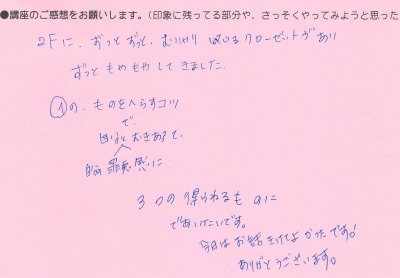 ●講座のご感想をお願いします。(印象に残ってる部分や、さっそくやってみようと思った
2Fに、ずっとずっと、むりやり 収めるクローゼットがあり
ずっと もやもやしてきました。
①の、ものをへらすコツ
で、
と むきあって、
自分 罪悪 思いに
3つの 得られるもの に
であいたいです。
今日は お話 きけてよかったです!
ありがとうございます。